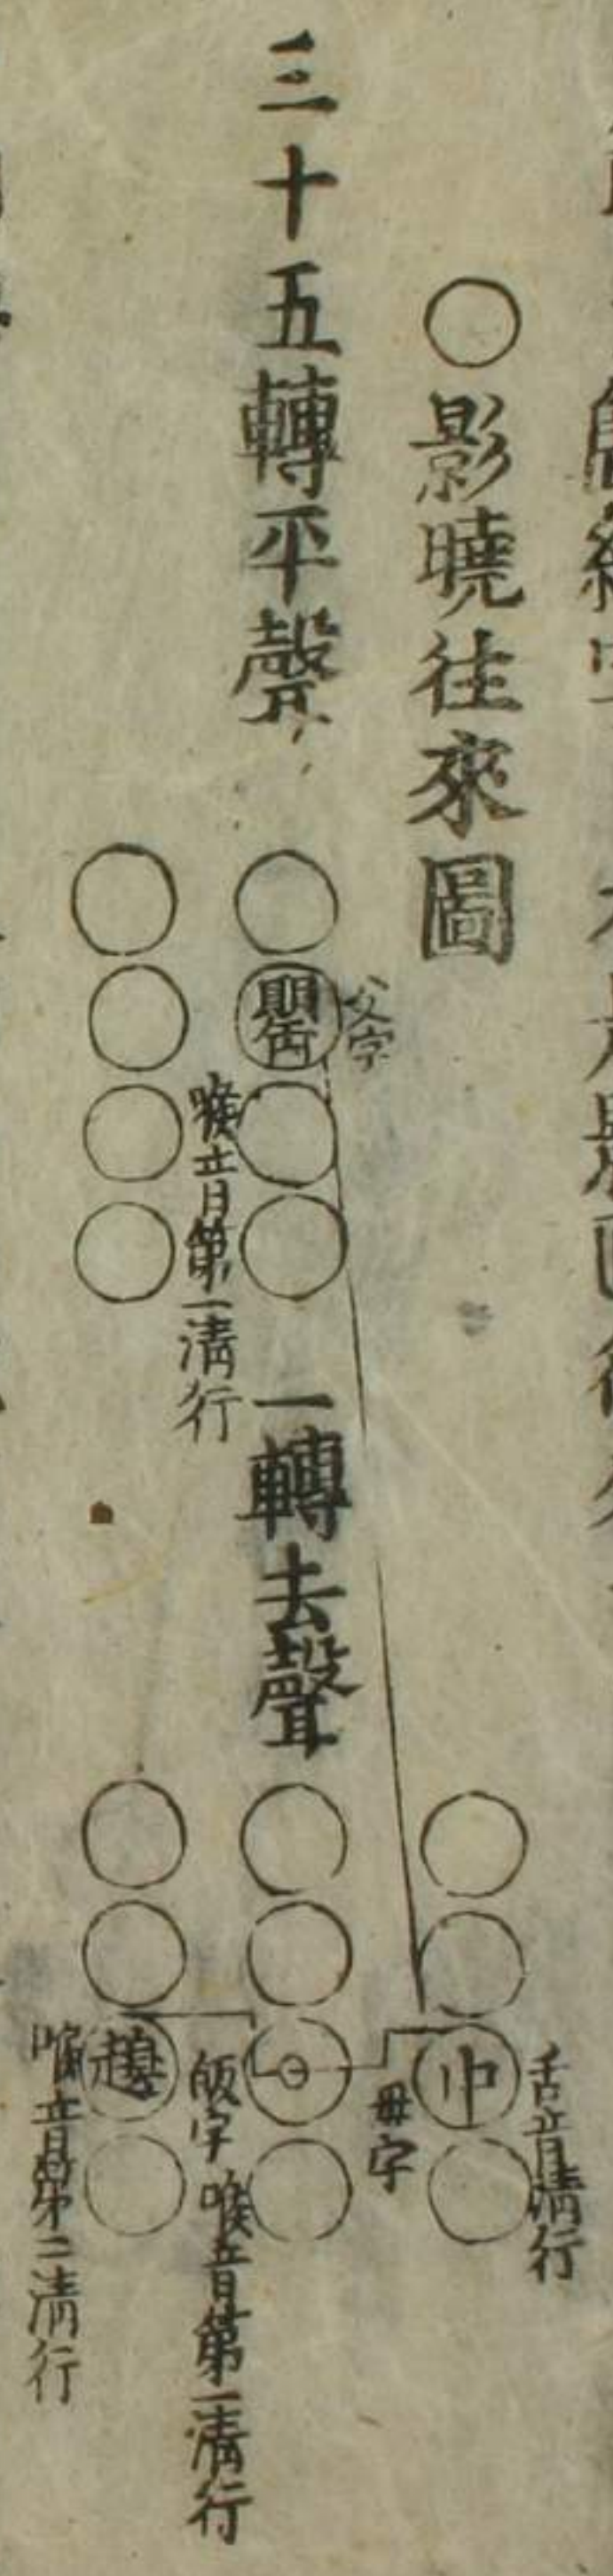 ○影曉往來圖
三十五轉平聲
罌
父字
喉音第一清行
一轉去聲
中
舌音清行
母字
皈字
喉音第一清行
喉音第二清行